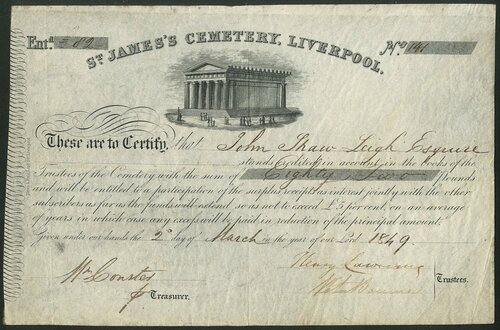 Entd. £82
No. 141
ST. JAMES'S CEMETERY, LIVERPOOL.
These are to Certify, that John Shaw Leigh Esquire
stands Creditor in account in the books of the
Trustees of the Cemetery with the sum of Eighty Two Pounds
and will be entitled to a participation of the surplus receipts as interest jointly with the other
subscribers as far as the funds will extend so as not to exceed £5 per cent. on an average
of years in which case any excess will be paid in reduction of the principal amount.
Given under our hands the 2d day of March in the year of our Lord 1849
Henry Lawrence
Wm
Treasurer.
Trustees.